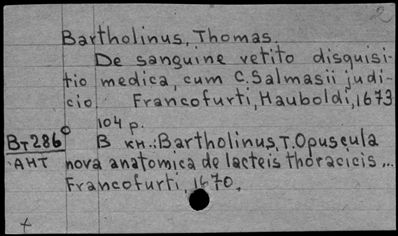 Bartholinus, Thomas.
De sanguine vetito disquisi-
tio medica, cum C. Salmasii judi-
cio. Francofurti, Hauboldi, 1673
104 p.
Вт286°
АНТ
В кн.: Bartholinus, T. Opuscula
nova anatomica de lacteis thoracicis...
Francofurti, 1670.